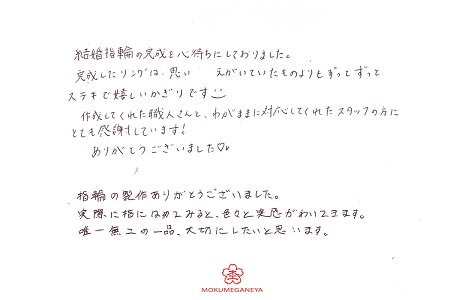 結婚指輪の完成を心待ちにしておりました。
完成したリングは、思い えがいていたものよりもずっとずっと
ステキで嬉しいかぎりです
作成してくれた職人さんと、わがままに対応してくれたスタッフの方に
とても感謝しています！
ありがとうございました♡
指輪の製作ありがとうございました。
実際に指にはめてみると、色々と実感がわいてきます。
唯一無二の一品、大切にしたいと思います。
MOKUMEGANEYA